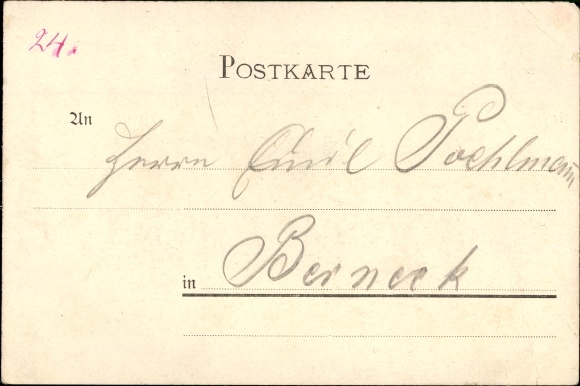 24.
POSTKARTE
An
Herrn Emil Poehlmann
in Berneck